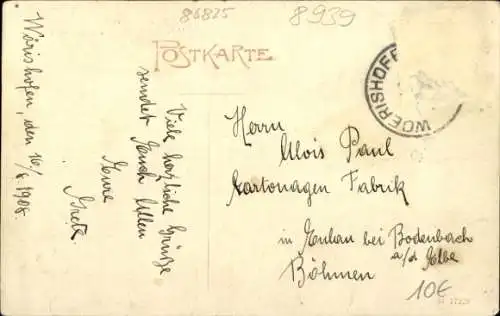 86825
8939
POSTKARTE
WOERISHOF
Wörishofen, den 16/6. 1908.
Viele herzliche Grüsse
sendet Euch Allen
Eure
Grete
Herrn
Alois Paul
Cartonagen Fabrik
in Eulau bei Bodenbach
a/d Elbe
Böhmen
10€